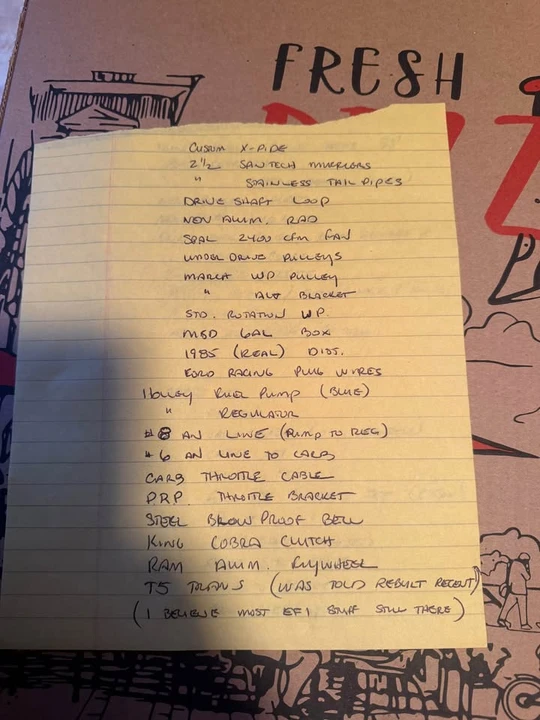 FRESH
CUSTOM X-PIPE
2 1/2 SANTECH MUFFLERS
" STAINLESS TAIL PIPES
DRIVE SHAFT LOOP
NEW ALUM. RAD
SPAL 2400 CFM FAN
UNDER DRIVE PULLEYS
MARCH WP PULLEY
" ALT BRACKET
STD. ROTATION WP.
MSD 6AL BOX
1985 (REAL) DIST.
FORD RACING PLUG WIRES
HOLLEY FUEL PUMP (BLUE)
" REGULATOR
#8 AN LINE (PUMP TO REG)
#6 AN LINE TO CARB
CARB THROTTLE CABLE
PRP THROTTLE BRACKET
STEEL BLOW PROOF BELL
KING COBRA CLUTCH
RAM ALUM. FLYWHEEL
T5 TRANS (WAS TOLD REBUILT RECENT)
(I BELIEVE MOST EFI STUFF STILL THERE)